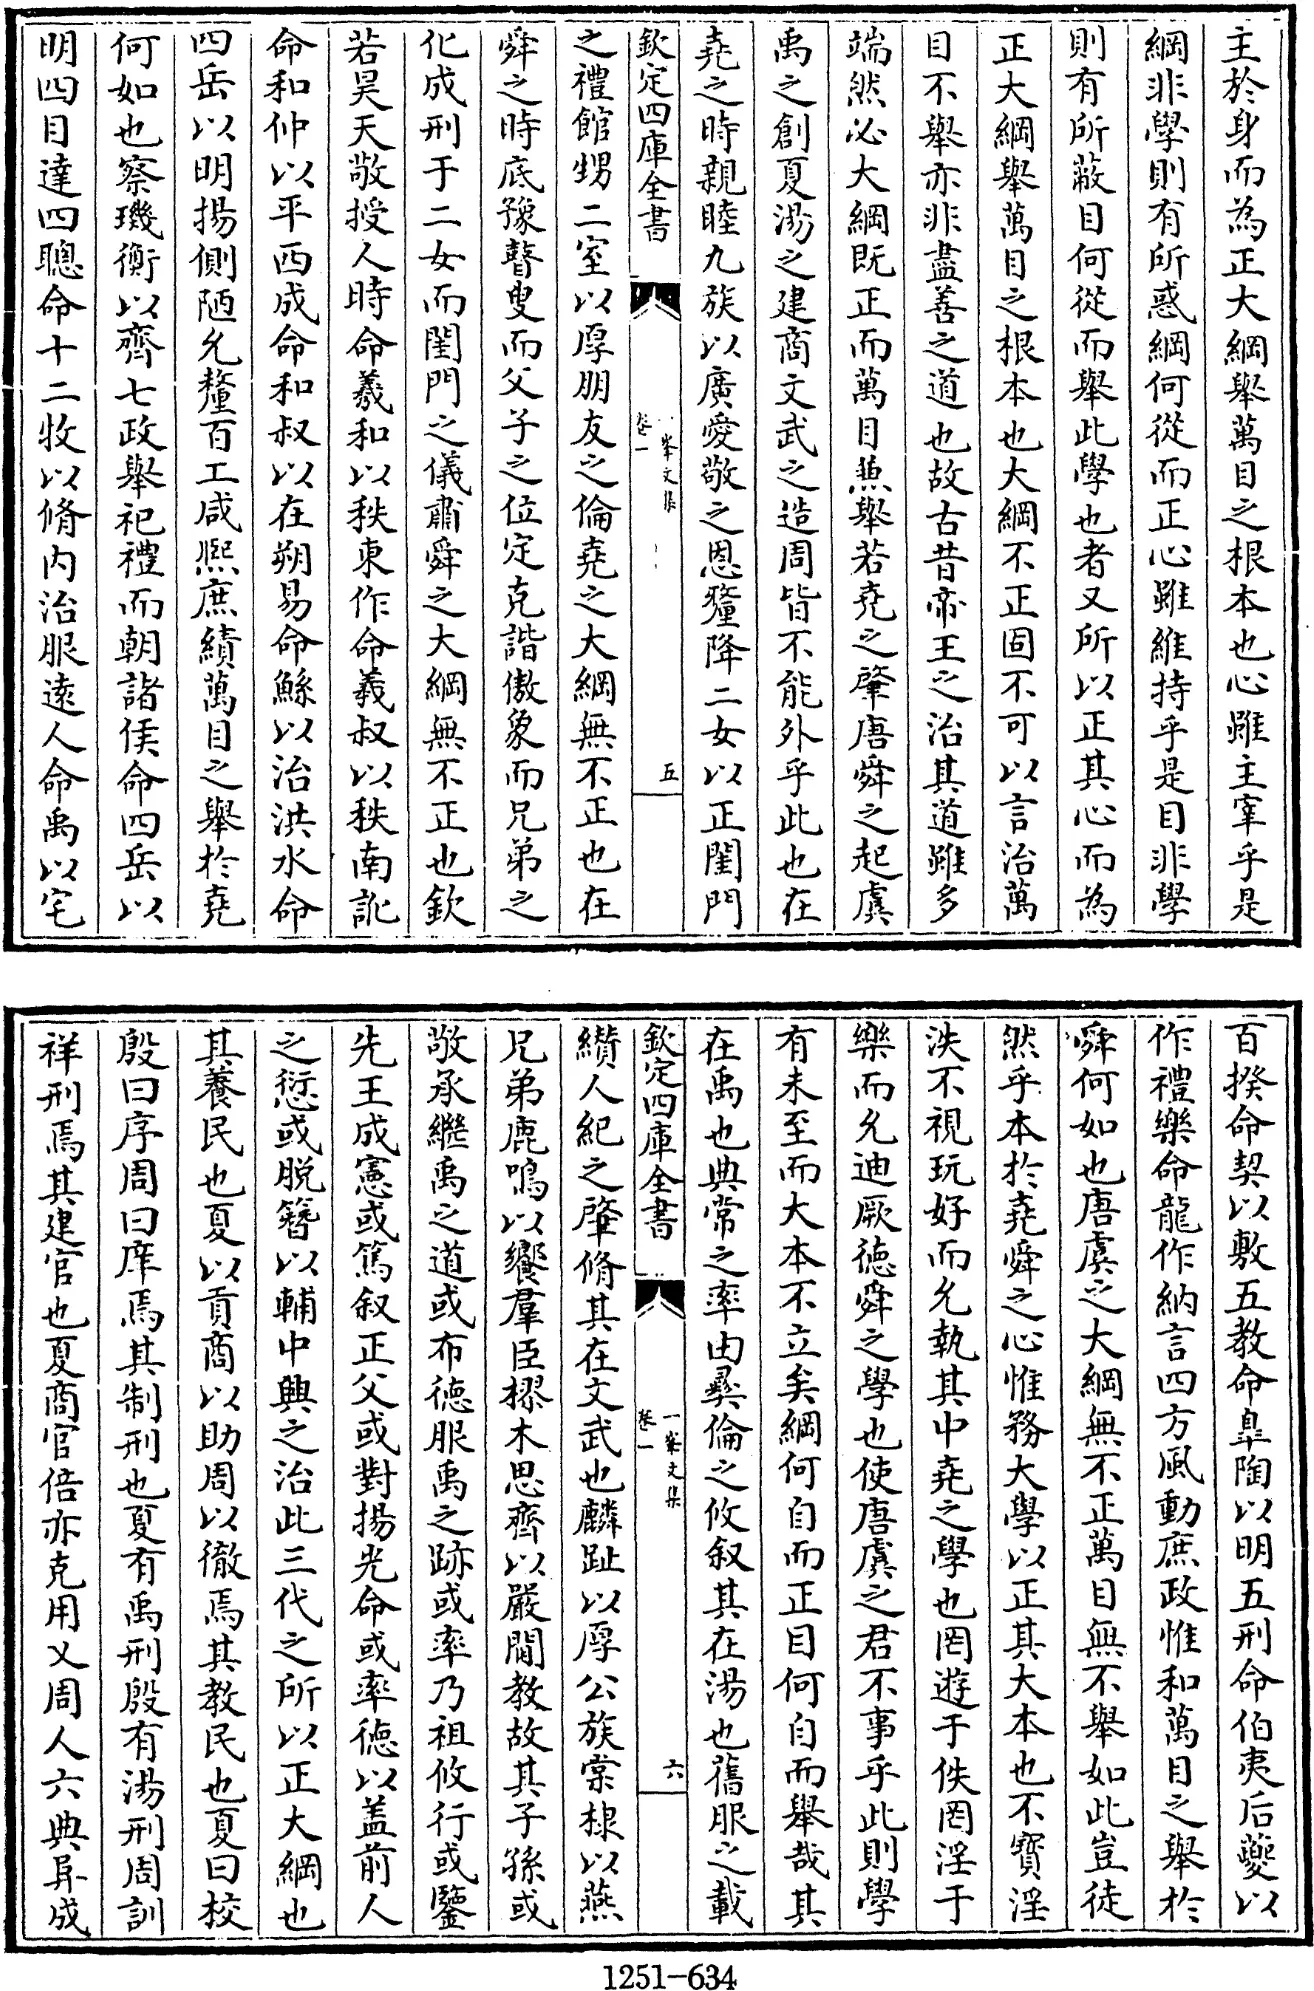 主於身而為正大綱舉萬目之根本也心雖主宰乎是
綱非學則有所惑綱何從而正心雖維持乎是目非學
則有所蔽目何從而舉此學也者又所以正其心而為
正大綱舉萬目之根本也大綱不正固不可以言治萬
目不舉亦非盡善之道也故古昔帝王之治其道雖多
端然必大綱既正而萬目兼舉若堯之肇唐舜之起虞
禹之創夏湯之建商文武之造周皆不能外乎此也在
堯之時親睦九族以廣愛敬之恩釐降二女以正閨門
欽定四庫全書
一峯文集
卷一
五
之禮館甥二室以厚朋友之倫堯之大綱無不正也在
舜之時底豫瞽叟而父子之位定克諧傲象而兄弟之
化成刑于二女而閨門之儀肅舜之大綱無不正也欽
若昊天敬授人時命羲和以秩東作命羲叔以秩南訛
命和仲以平西成命和叔以在朔易命鯀以治洪水命
四岳以明揚側陋允釐百工咸熙庶績萬目之舉於堯
何如也察璣衡以齊七政舉祀禮而朝諸侯命四岳以
明四目達四聰命十二牧以脩內治服遠人命禹以宅
百揆命契以敷五教命臯陶以明五刑命伯夷后夔以
作禮樂命龍作納言四方風動庶政惟和萬目之舉於
舜何如也唐虞之大綱無不正萬目無不舉如此豈徒
然乎本於堯舜之心惟務大學以正其大本也不寳淫
泆不視玩好而允執其中堯之學也罔遊于佚罔淫于
樂而允迪厥德舜之學也使唐虞之君不事乎此則學
有未至而大本不立矣綱何自而正目何自而舉哉其
在禹也典常之率由彞倫之攸叙其在湯也舊服之載
欽定四庫全書
一峯文集
卷一
六
纘人紀之肇脩其在文武也麟趾以厚公族棠棣以燕
兄弟鹿鳴以饗羣臣樛木思齊以嚴閫教故其子孫或
敬承繼禹之道或布德服禹之跡或率乃祖攸行或鑒
先王成憲或篤叙正父或對揚光命或率德以盖前人
之愆或脫簪以輔中興之治此三代之所以正大綱也
其養民也夏以貢商以助周以徹焉其教民也夏曰校
殷曰序周曰庠焉其制刑也夏有禹刑殷有湯刑周訓
祥刑焉其建官也夏商官倍亦克用乂周人六典阜成
1251-634